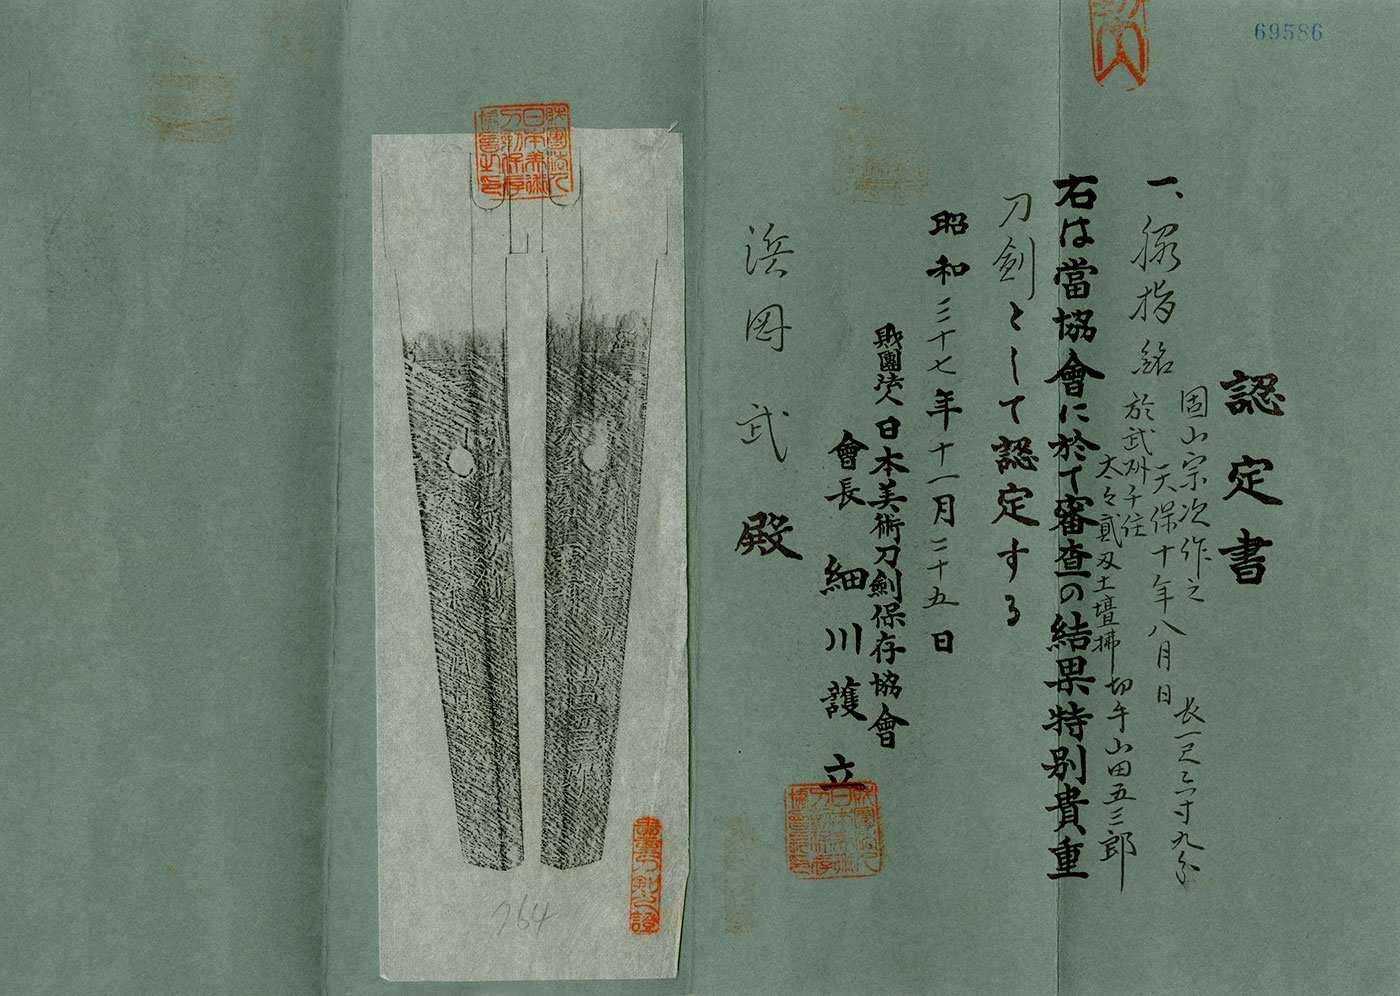 69586
認定書
一、脇指 銘
固山宗次作之
天保十年八月日
長一尺六寸九分
於武州千住
太々貳刃土壇拂 切手山田五三郎
右は當協會に於て審査の結果特別貴重
刀劍として認定する
昭和三十七年十一月二十五日
財團法人 日本美術刀劍保存協會
會長 細川護立
浜岡武殿
財團法人日本美術刀剣保存協會之印
764